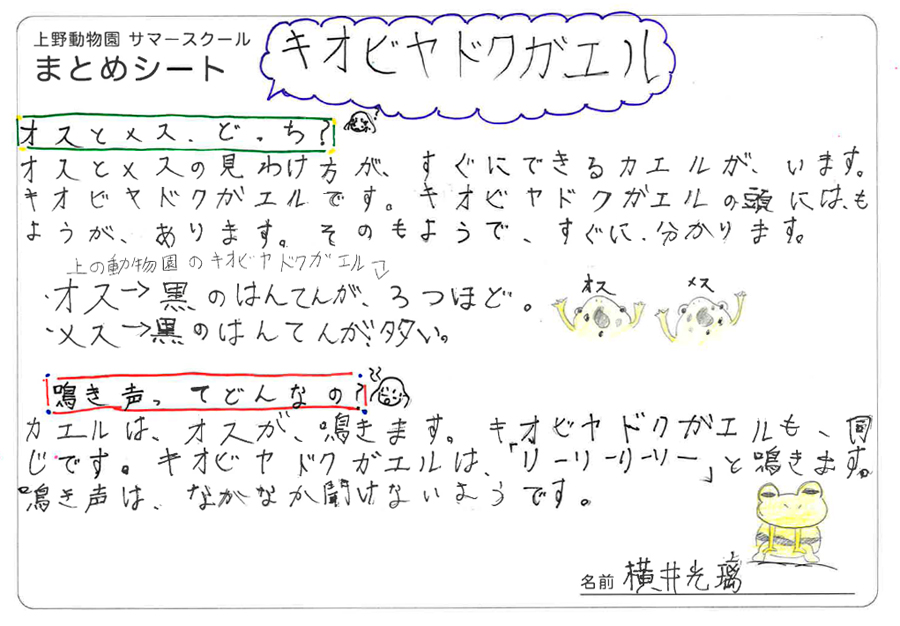 上野動物園 サマースクール
まとめシート
キオビヤドクガエル
オスとメス、どっち?
オスとメスの見わけ方が、すぐにできるカエルが、います。
キオビヤドクガエルです。キオビヤドクガエルの頭には、も
ようが、あります。そのもようで、すぐに、分かります。
上の動物園のキオビヤドクガエル
・オス→黒のはんてんが、3つほど。
・メス→黒のはんてんが、多い。
オス
メス
鳴き声ってどんなの?
カエルは、オスが、鳴きます。キオビヤドクガエルも、同
じです。キオビヤドクガエルは、「リーリーリーリー」と鳴きます。
鳴き声は、なかなか聞けないようです。
名前 横井光璃